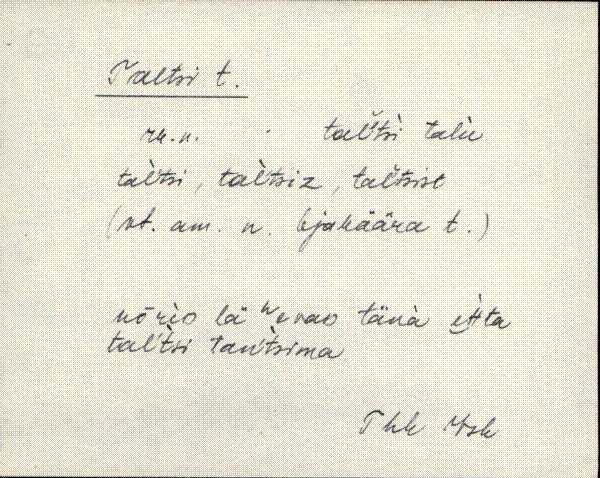 Taltsi t.
rk. n. tal̆'tsi̬ talu
tal̀'tsi, tal̀'tsiz, tal̆'tsist
(vt. am. n. Ojakäära t.)
nōrèo lä evao tänà ètta
tal'tsi tan'tsima
Thk Mrk